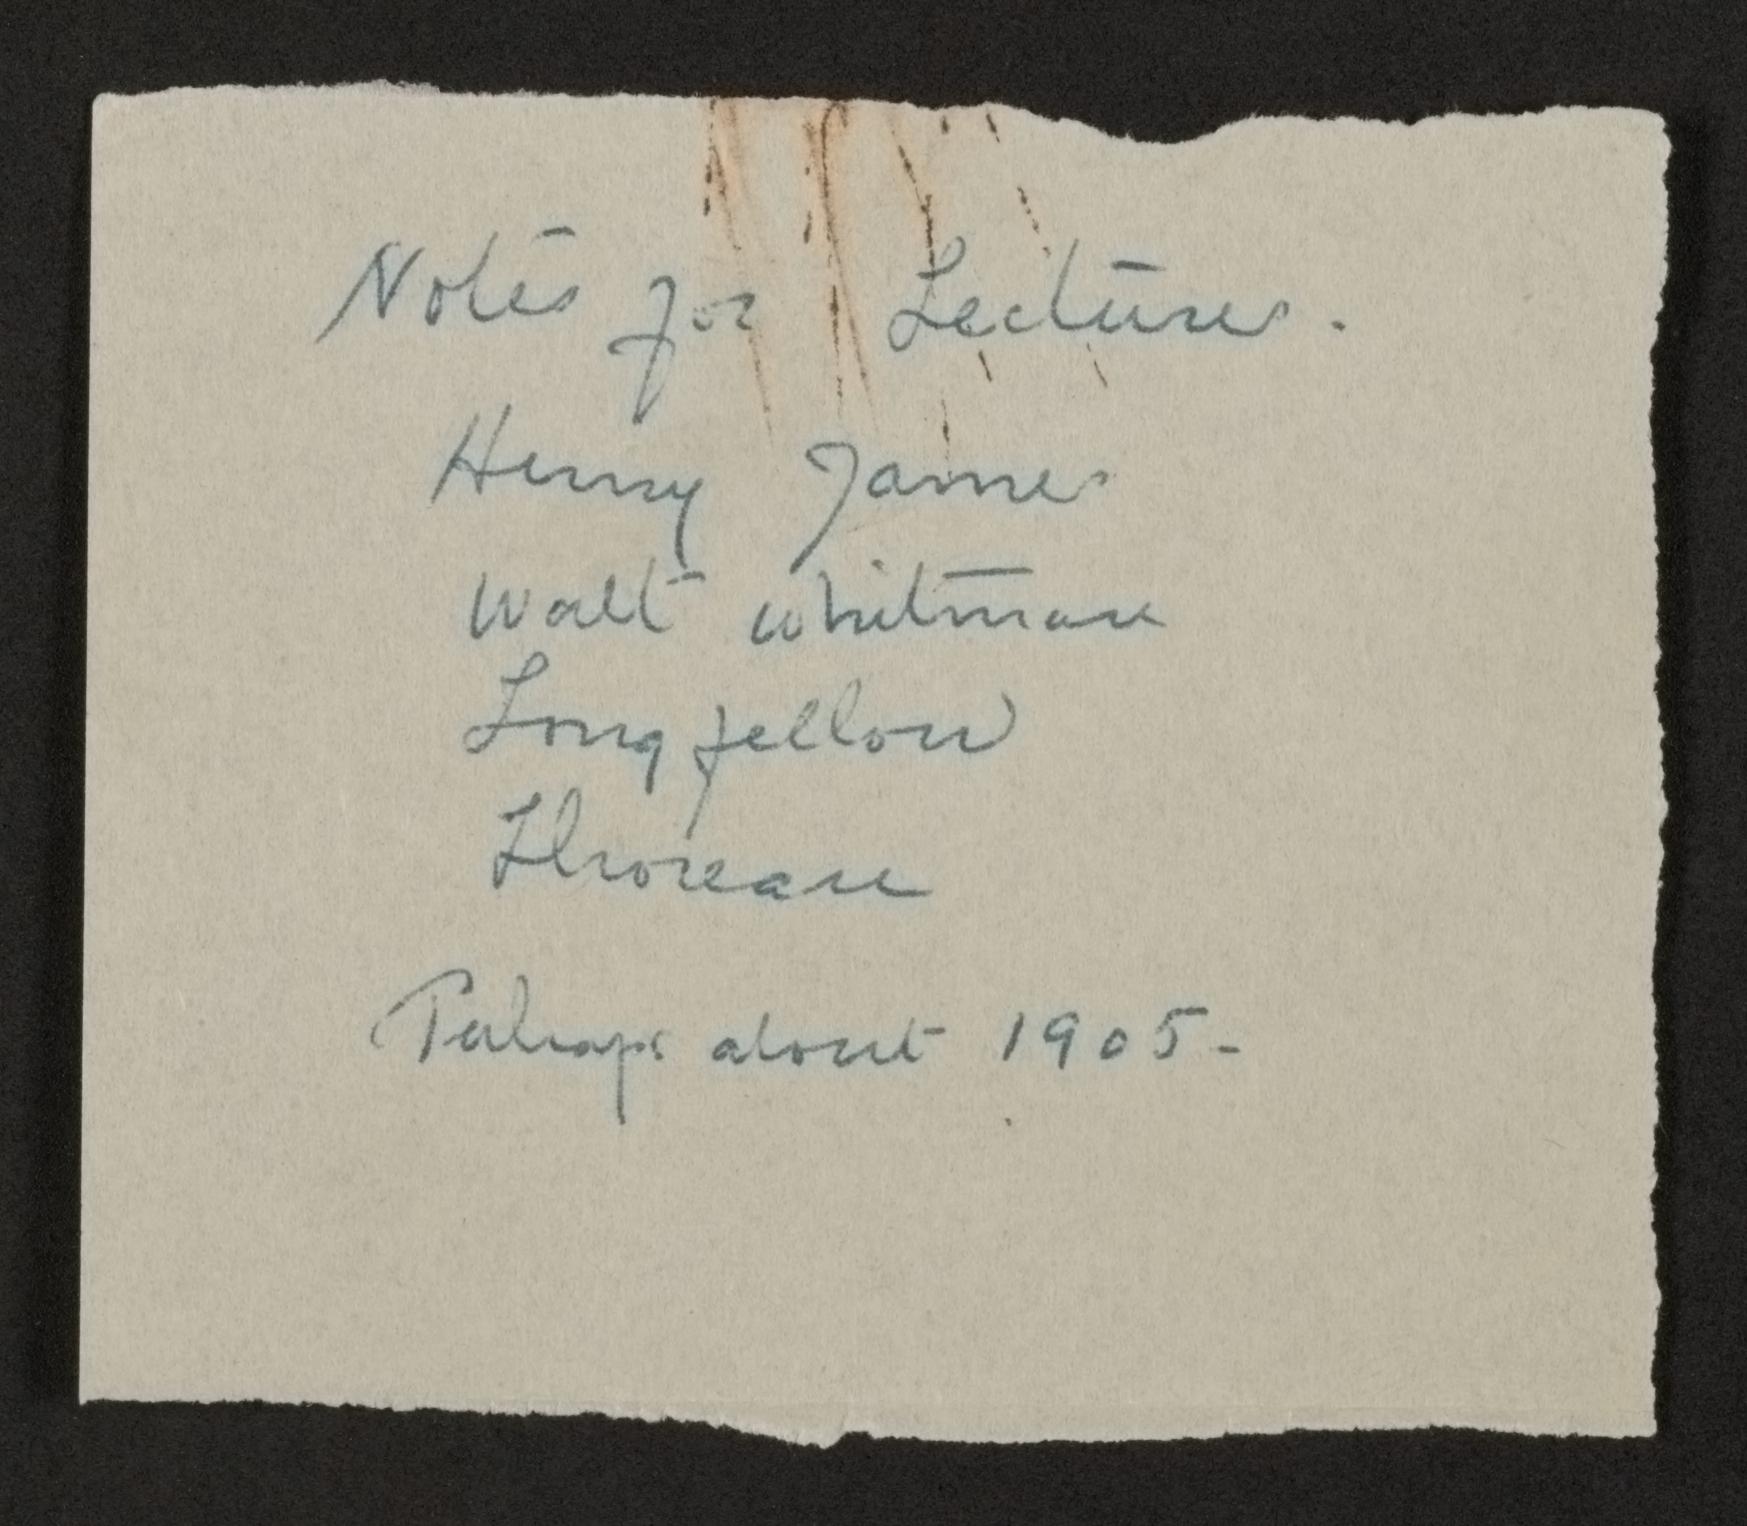 Notes for Lectures.
Henry James
Walt Whitman
Longfellow
Thoreau
Perhaps about 1905-